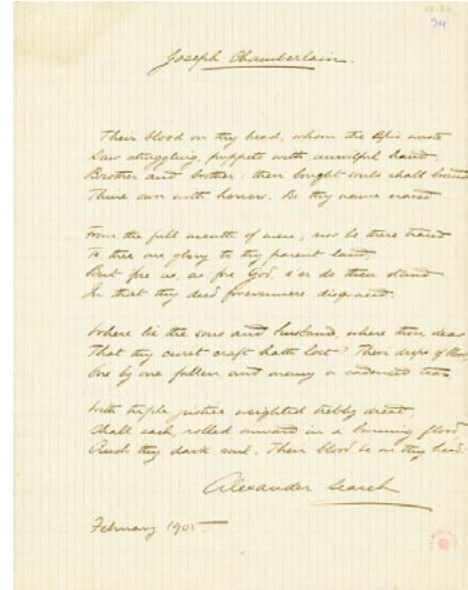 Joseph Chamberlain.
Their blood on thy head, whom the Afric waste
Saw struggling, puppets with unwilful hand,
Brother and brother: their bought souls shall brand
Thine own with horror. Be thy name erased
From the full mouth of men; nor be there traced
To thee one glory to thy parent land;
But fore us, as fore God, e'er do thou stand
In that thy deed forevermore disgraced.
Where lie the sons and husbands, where those dear
That thy curst craft hath lost? Their drops of blood,
One by one fallen and many a cadenced tear,
With triple justice weighted trebly dread,
Shall each, rolled onward in a burning flood,
Crush thy dark soul. Their blood be on thy head.
Alexander Search
February 1905.